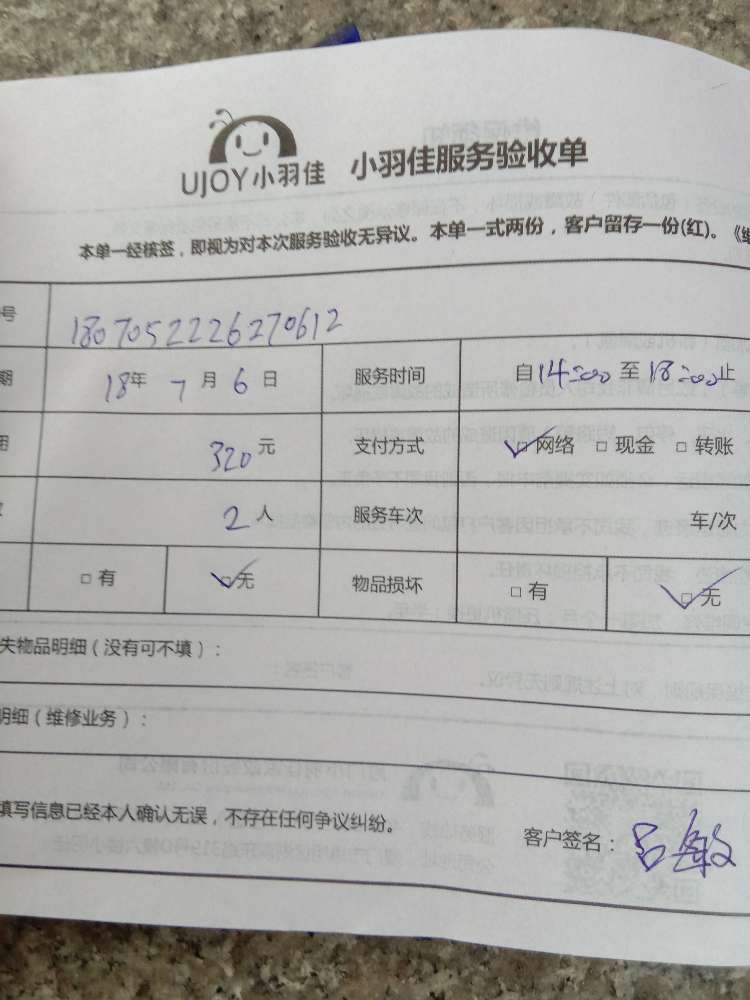 UJOY小羽佳 小羽佳服务验收单
本单一经核签，即视为对本次服务验收无异议。本单一式两份，客户留存一份(红)。《维
号 1807052226270612
期 18年 7月 6日 服务时间 自14:00至18:00止
用 320元 支付方式 ☑网络 □现金 □转账
2人 服务车次 车/次
□有 ☑无 物品损坏 □有 ☑无
失物品明细（没有可不填）：
明细（维修业务）：
填写信息已经本人确认无误，不存在任何争议纠纷。
客户签名：吕敏